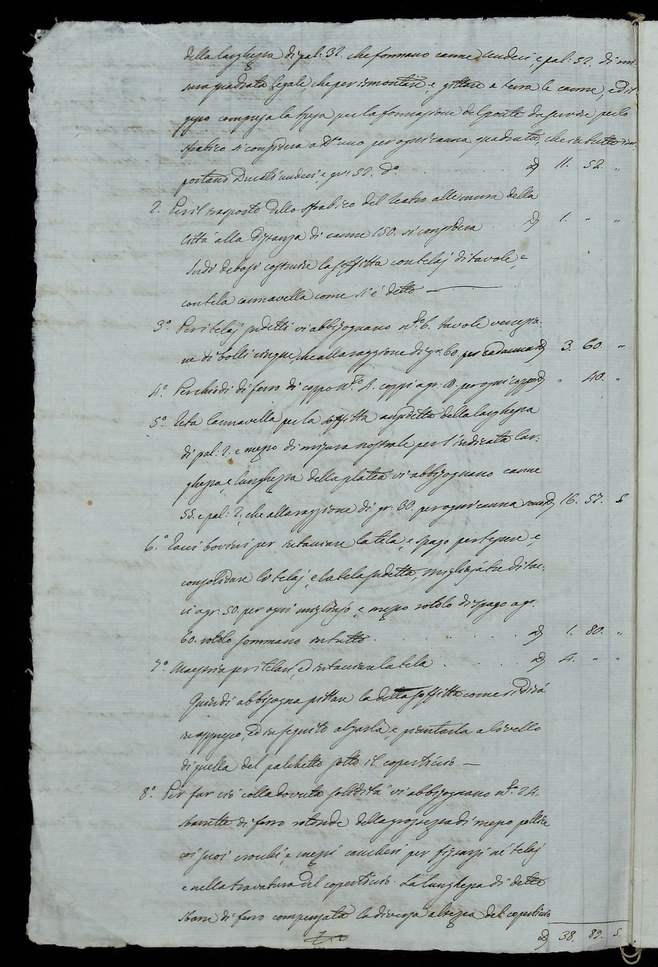 della larghezza di pal: 32. che formano canne undeci, e pal: 52. di mi-
sura quadrata legale, che per ismontare, e gittare a terra le canne, ed il
gesso compresa la spesa per la formazione del ponte da servire per lo
sfabrico si considera a D.to uno per ogni canna quadrata, che in tutto im-
portano Ducati undeci, e gr: 52. D.o D 11. 52. "
2. Per il trasporto dello sfabrico del teatro alle mura della
Città alla distanza di canne 150. si considera D 1. " "
Indi debbasi costruire la soffitta con telaj di tavole, e
con tela cannavella come si è detto
3.o Per i telaj sudetti vi abbisognano n.o 6. tavole venezia-
ne di bolli cinque, che alla raggione di gr: 60. per cadauna D 3. 60. "
4.o Per chiodi di ferro di coppo n.o 4. coppi a gr. 0 per ogni coppo D " 40. "
5.o Tela Cannavella per la soffitta anzidetta della larghezza
di pal: 2. e mezzo di misura nostrale per l'indicata lar-
ghezza, e lunghezza della platea vi abbisognano canne
55. e pal: 2. che alla raggione di gr: 30. per ogni canna D 16. 57. 5
6.o bovini per intaccare la tela, e spago per tessere, e
consolidare li telaj, e la tela sudetta, migliaja tre di tac-
ci a gr. 50 per ogni migliajo, e mezzo rotolo di spago a gr.
60. rotolo sommano in tutto D 1. 80. "
7.o Maestria per i telari, ed intaccare la tela D 4. " "
Quindi abbisogna pittare la detta soffitta come si dirà
in appresso, ed in seguito alzarla e piantarla a livello
di quella del palchetto sotto il coperticcio
8.o Per far ciò colla dovuta solidità vi abbisognano n.o 24.
barrette di ferro rotonde della grossezza di mezzo pollice
coi suoi occhi, e mezzi cancheri per fissarsi nei telaj
e nella travatura del coperticcio. La lunghezza di dette
barre di ferro compensata la diversa altezza del coperticcio
D 38. 89. 5.